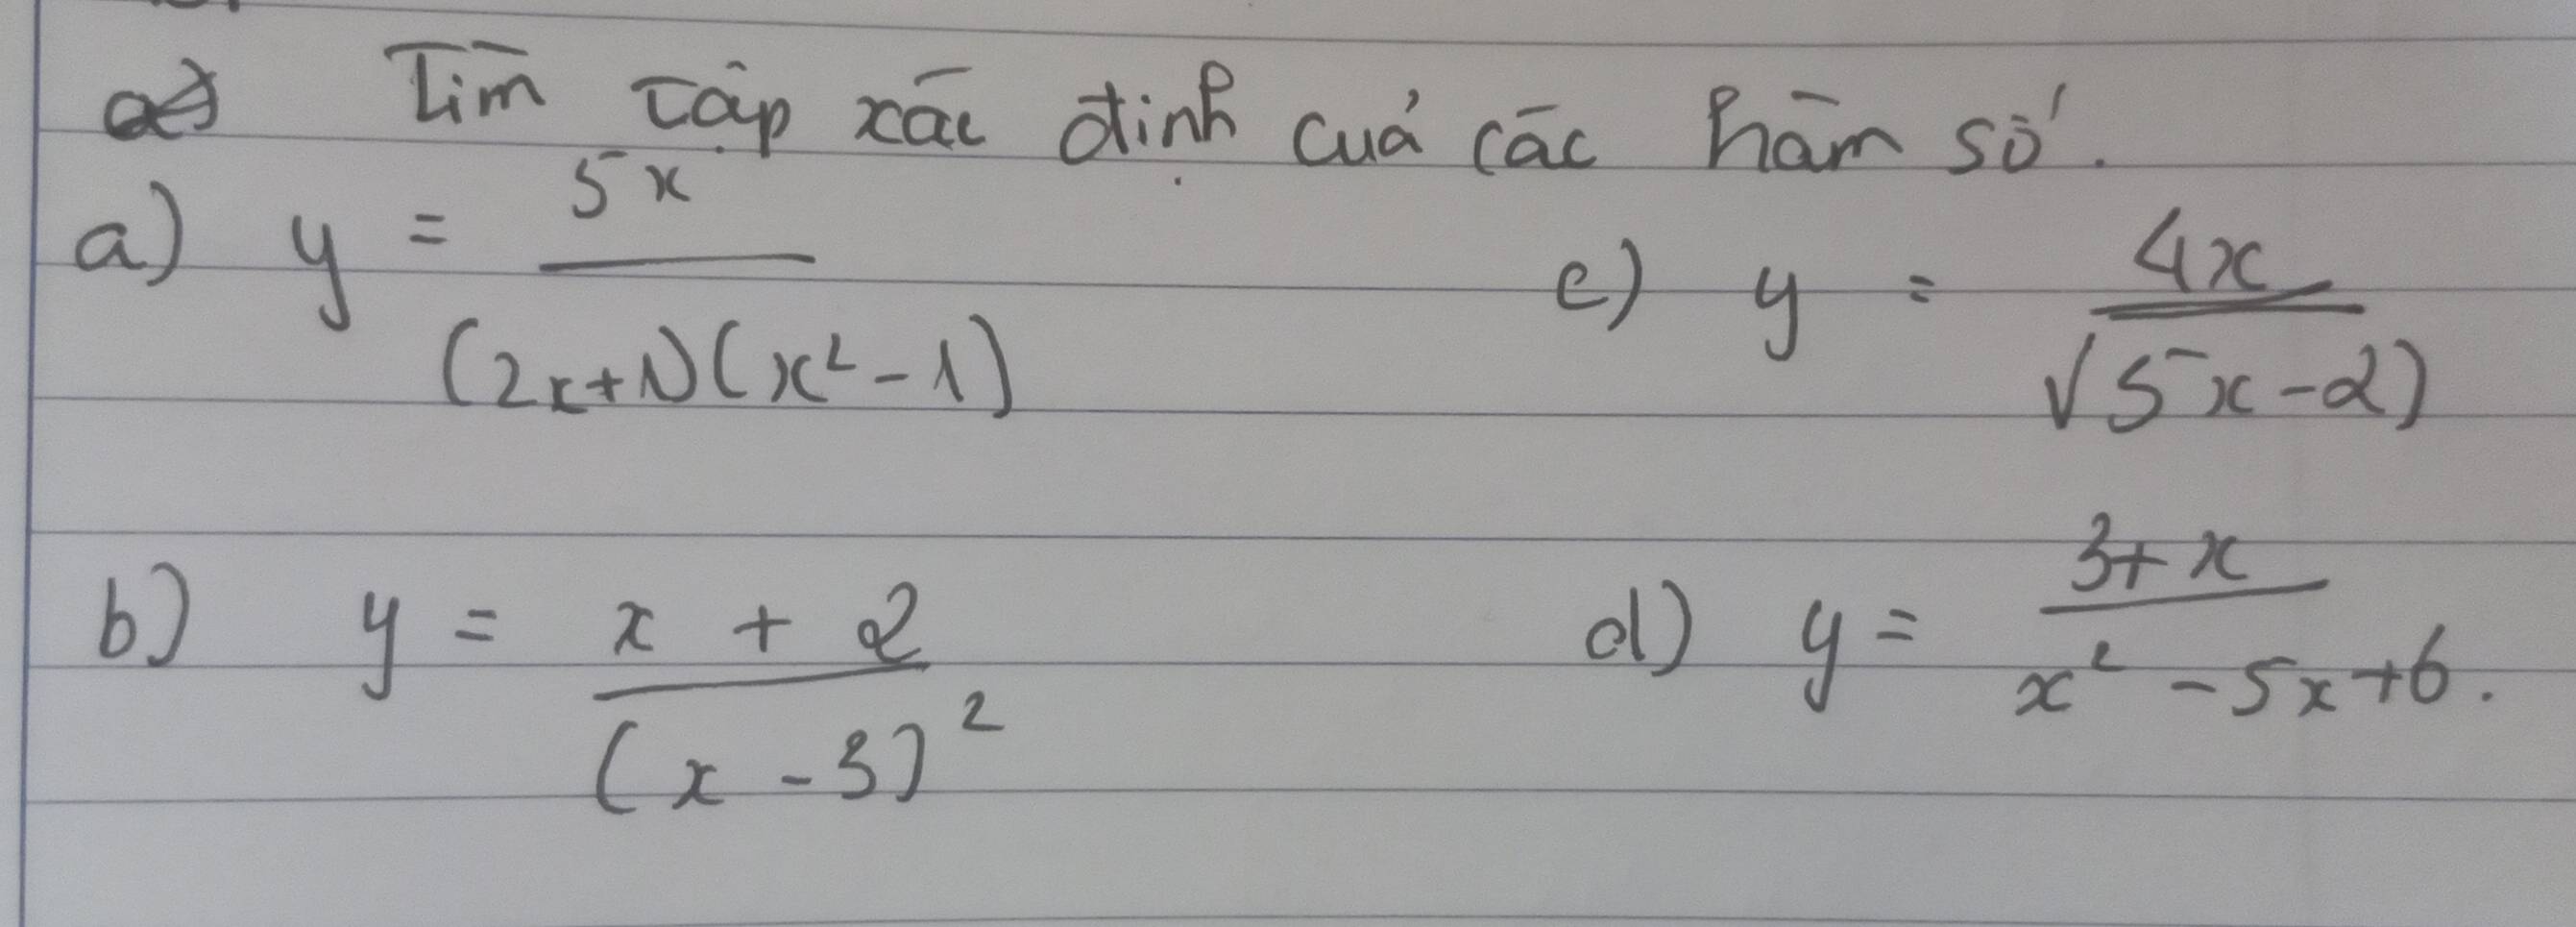 Tìm tập xác định của các hàm số.
a) y = 5x / (2x+1)(x² - 1)
c) y = 4x / √5x-2)
b) y = x + 2 / (x - 3)²
d) y = 3+x / x² - 5x+6.